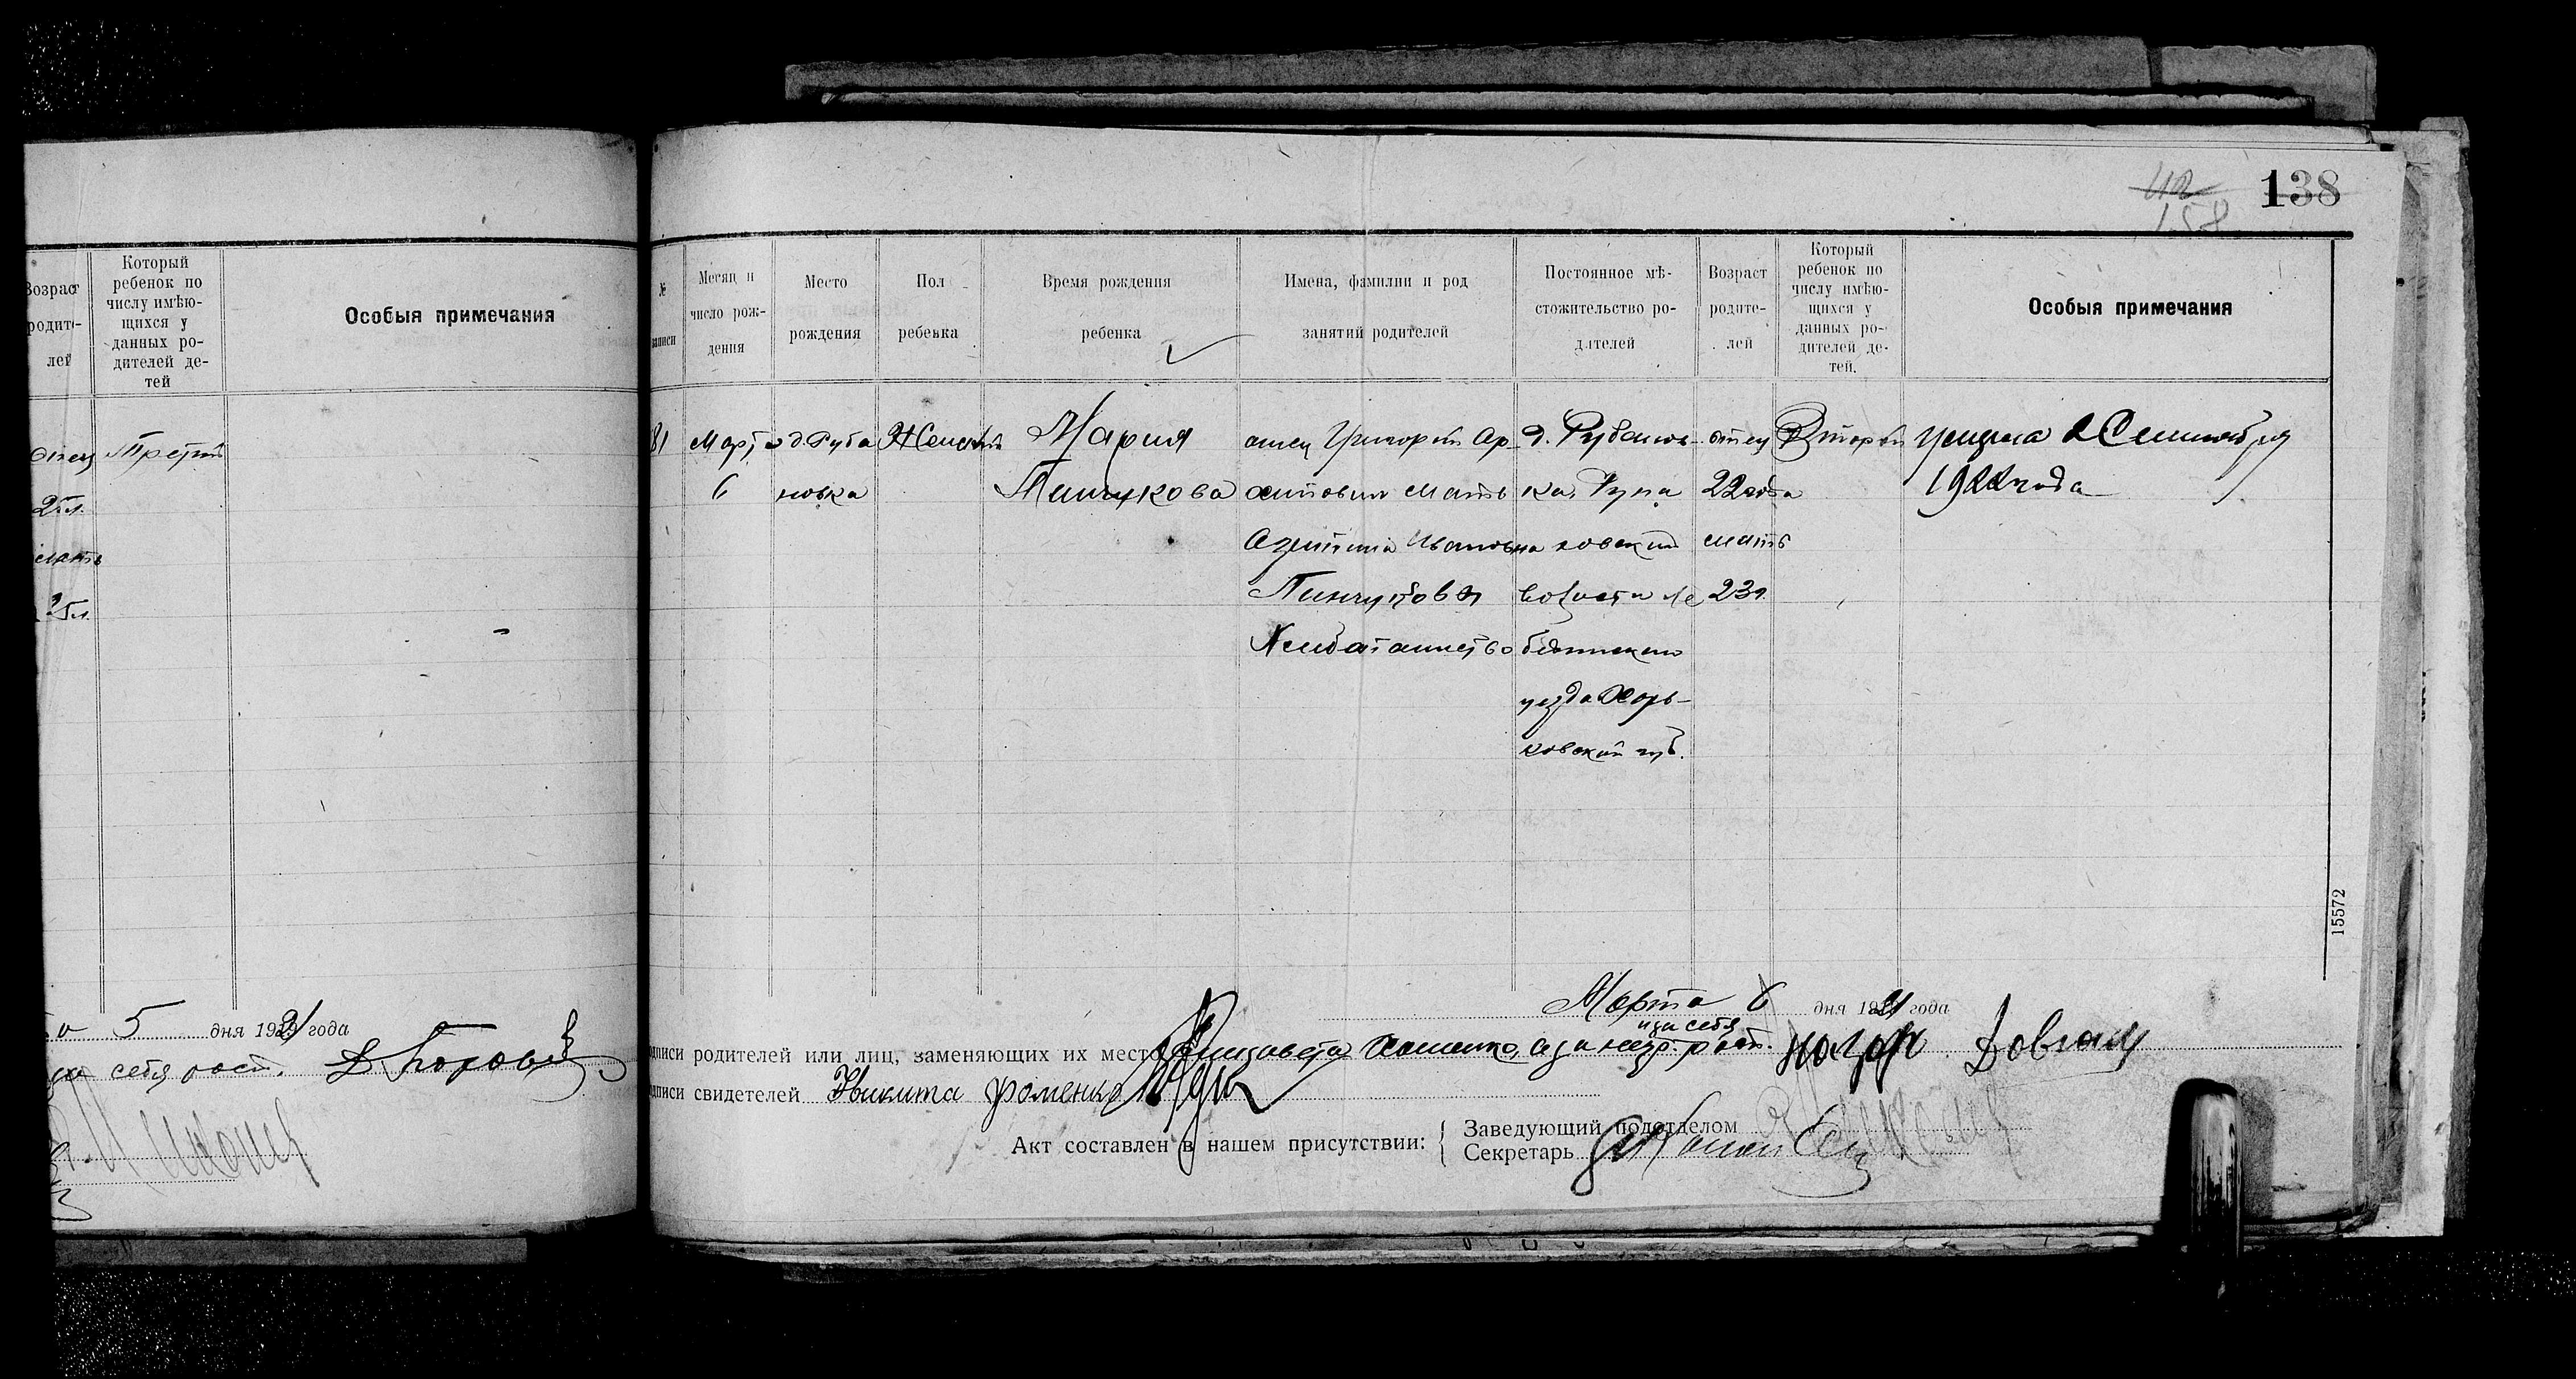 42
138
158
Возраст
родите-
лей
Который
ребенок по
числу имѣю-
щихся у
данных ро-
дителей де-
тей
Особыя примечания
отец
Третий
25 л.
мать
25 л.
5 дня 1921 года
за себя расп.
№
записи
Месяц и
число рож-
дения
Место
рождения
Пол
ребенка
Время рождения
ребенка
Имена, фамилии и род
занятий родителей
Постоянное мѣ-
стожительство ро-
дителей
Возраст
родите-
лей
Который
ребенок по
числу имѣю-
щихся у
данных ро-
дителей де-
тей.
Особыя примечания
81
Марта
6
д. Руба
новка
Женский
Мария
Пинчукова
отец Григорий Ар
хипович мать
Ивановна
Пинчукова
Хлебопашество
д. Рубанов
ка, Рунов
ковский
волости Ле
бединского
уезда Харь-
ковской губ.
отец
22 года
мать
23 г.
Второй
умерла 2 Сентября
1922 года
15572
Марта 6 дня 1921 года
и за себя
подписи родителей или лиц, заменяющих их место Елизавета а за негр. расп. Назар Довгаль
подписи свидетелей Никита Фоменко
Акт составлен в нашем присутствии:
Заведующий подотделом
Секретарь